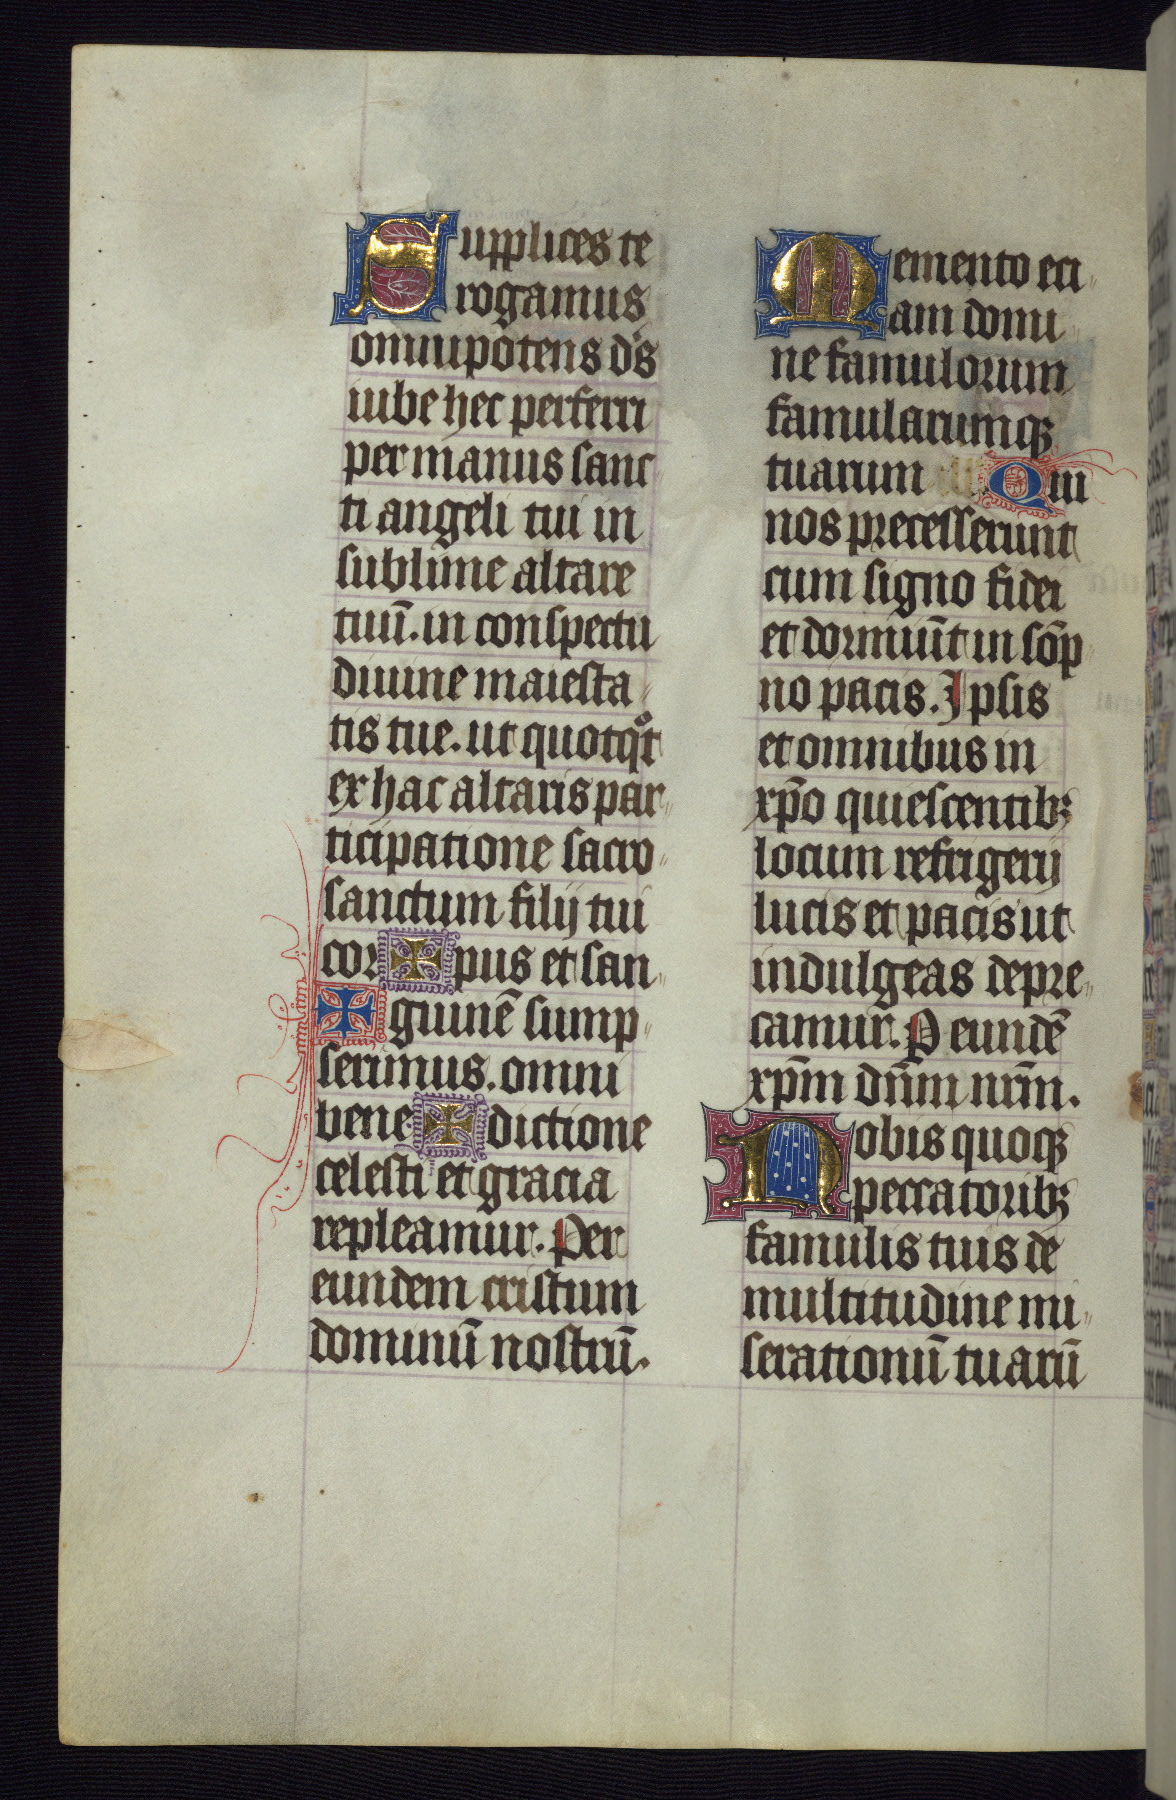 Supplices te
rogamus
omnipotens d̅s
iube hec perferri
per manus sanc
ti angeli tui in
sublime altare
tuu̅. in conspectu
diuine maiesta
tis tue. ut quotqͦt
ex hac altaris par
ticipatione sacro
sanctum filij tui
cor ✠ pus et san
✠ guine̅ sump
serimus. omni
bene ✠ dictione
celesti et gracia
repleamur. Per
eundem cristum
dominu̅ nostru̅.
Memento eci
am domi
ne famulorum
famularumqꝫ
tuarum Qui
nos precesserunt
cum signo fidei
et dormiu̅t in so̅p
no pacis. Ipsis
et omnibus in
xp̅o quiescentibꝫ
locum refrigerij
lucis et pacis ut
indulgeas depre
camur. P eunde̅
xp̅m dn̅m nr̅m.
Nobis quoqꝫ
peccatoribꝫ
famulis tuis de
multitudine mi
serationu̅ tuaru̅